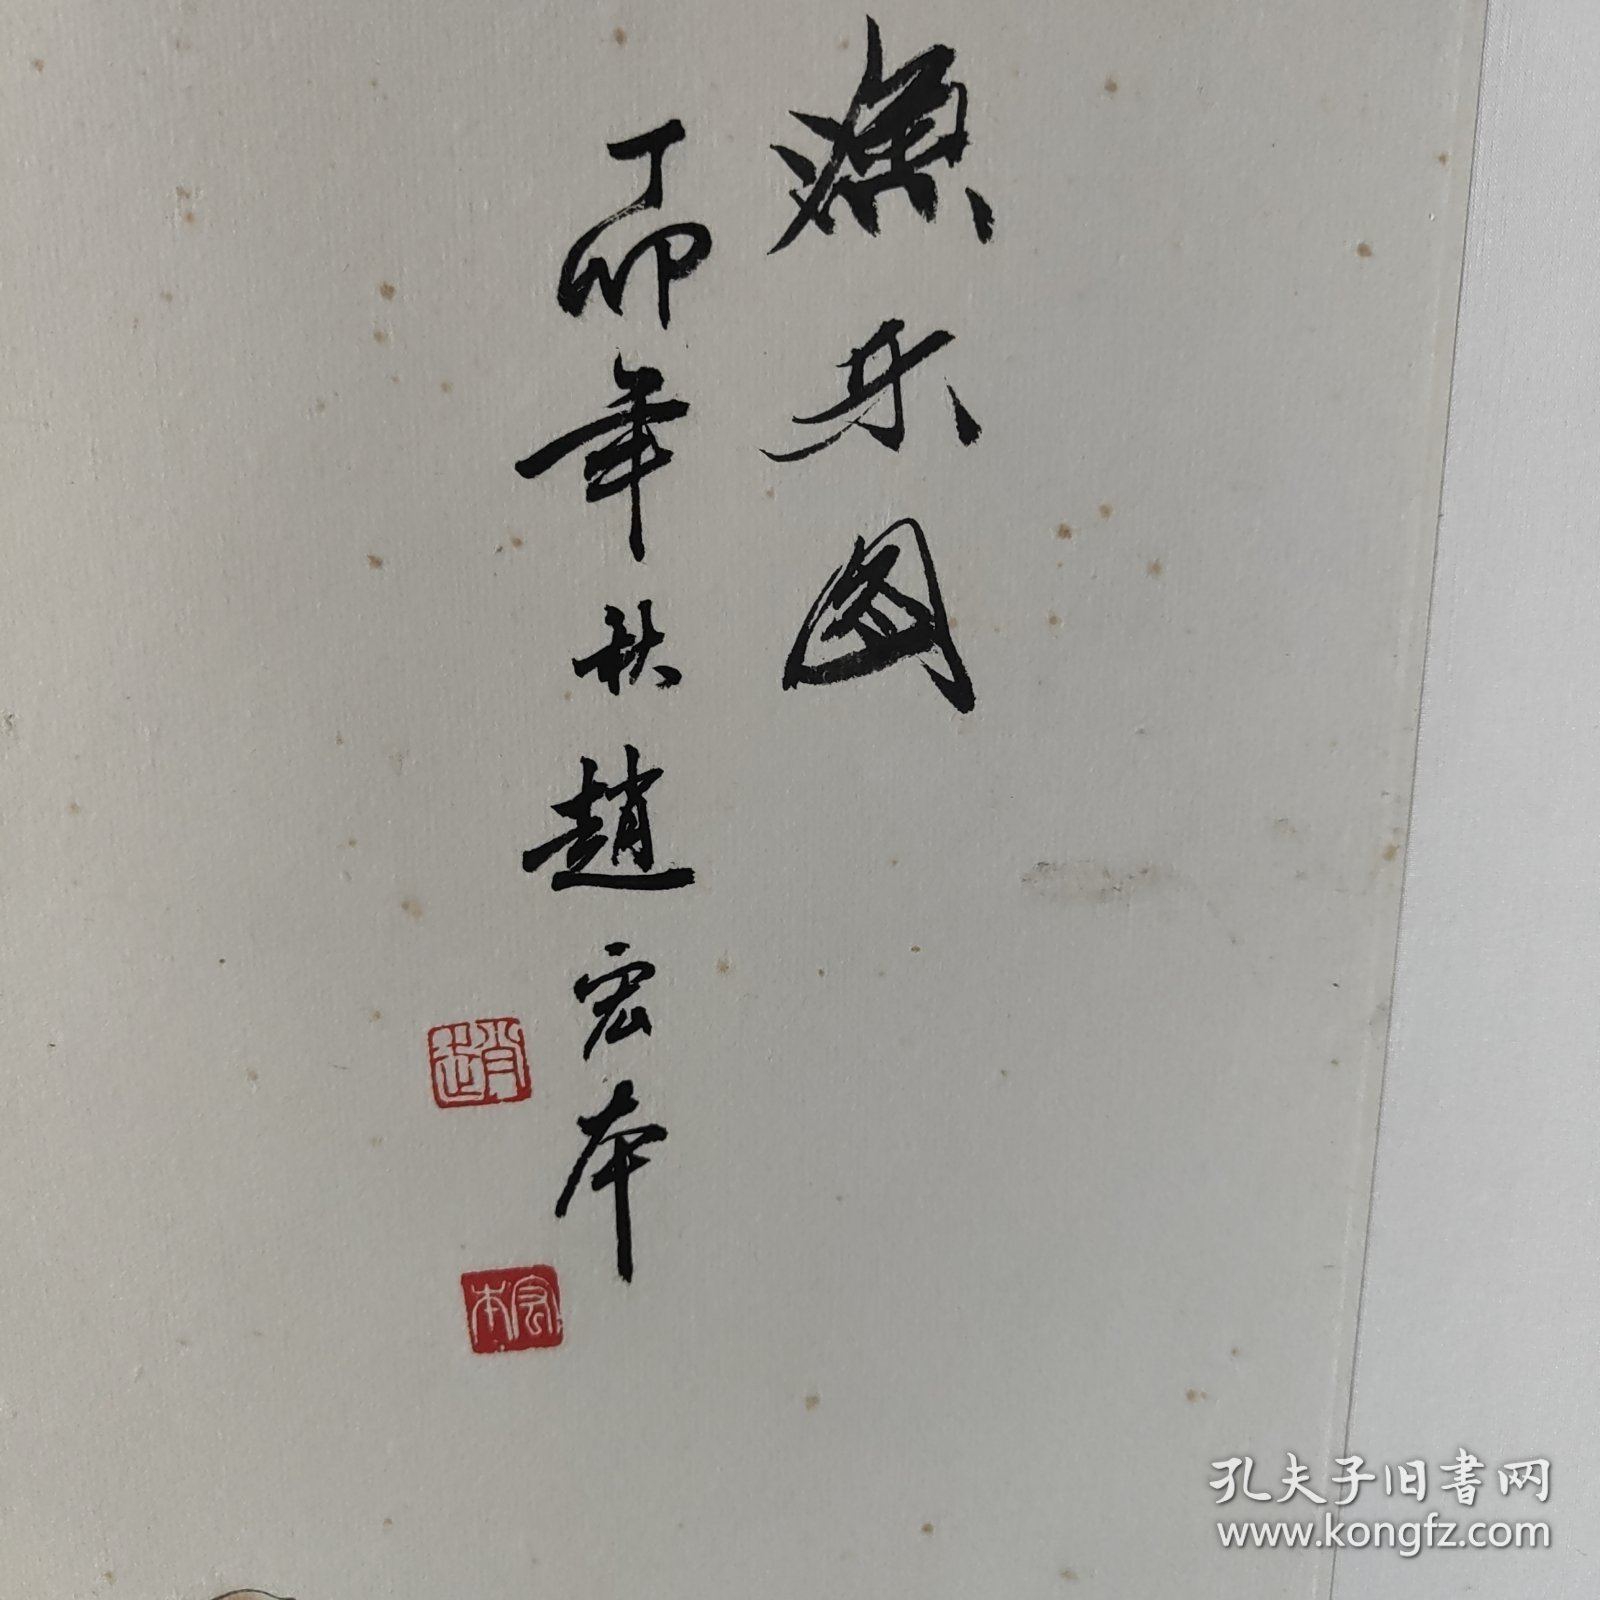 渔乐图
丁卯年秋趙宏本
趙
宏本
孔夫子旧书网
www.kongfz.com